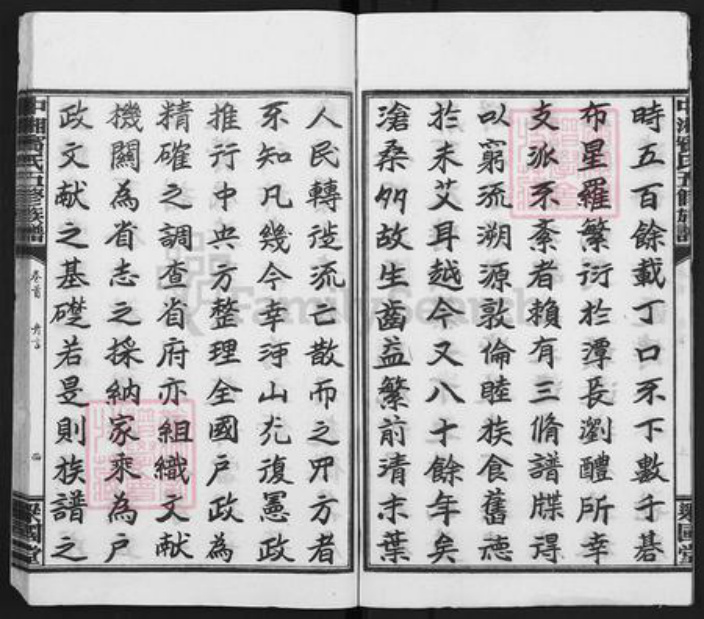 時五百餘載丁口不下數千碁
布星羅繁衍於潭長瀏醴所幸
支派不紊者賴有三脩譜牒得
以窮流溯源敦倫睦族食舊德
於未艾耳越今又八十餘年矣
滄桑夘故生齒益繁前清末葉
人民轉徙流亡散而之四方者
不知凡幾今幸河山光復憲政
推行中央方整理全國戶政為
精確之調查省府亦組織文献
機關為省志之採納家乘為戶
政文献之基礎若是則族譜之
中湘 氏五修族譜
卷首
四